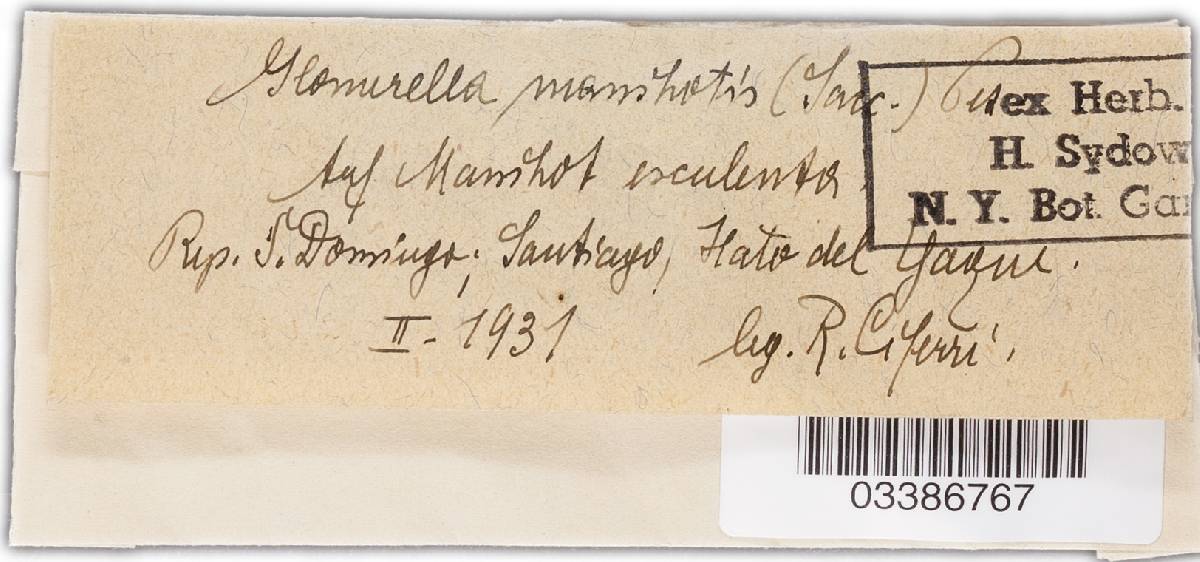 Glomerella manihotis (Sacc.)
ex Herb.
H. Sydow
N. Y. Bot. Gar
auf Manihot esculenta.
Rep. S. Domingo; Santiago, Hato del Yaque.
II - 1931 leg. R. Ciferri.
03386767